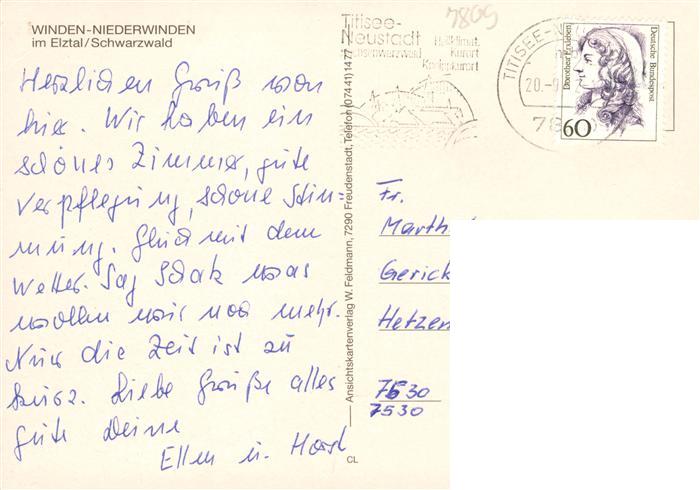 WINDEN-NIEDERWINDEN
im Elztal/Schwarzwald
Herzlichen Gruß von
hier. Wir haben ein
schönes Zimmer, gute
Verpflegung, schöne Stim-
mung. Glück mit dem
Wetter. Sag Schatz was
wollen wir noch mehr.
Nur die Zeit ist zu
kurz. Liebe Grüße alles
gute Deine
Ellen u. Horst
CL
Ansichtskartenverlag W. Feldmann, 7290 Freudenstadt, Telefon (07441) 1477
7809
Titisee-
Neustadt
Hochschwarzwald
Heilklimat.
Kurort
Kneippkurort
TITISEE-NEU
20.-9
78
Dorothea Erxleben
Deutsche Bundespost
60
Fr.
Marth
Gerick
Hetzen
7530
7530